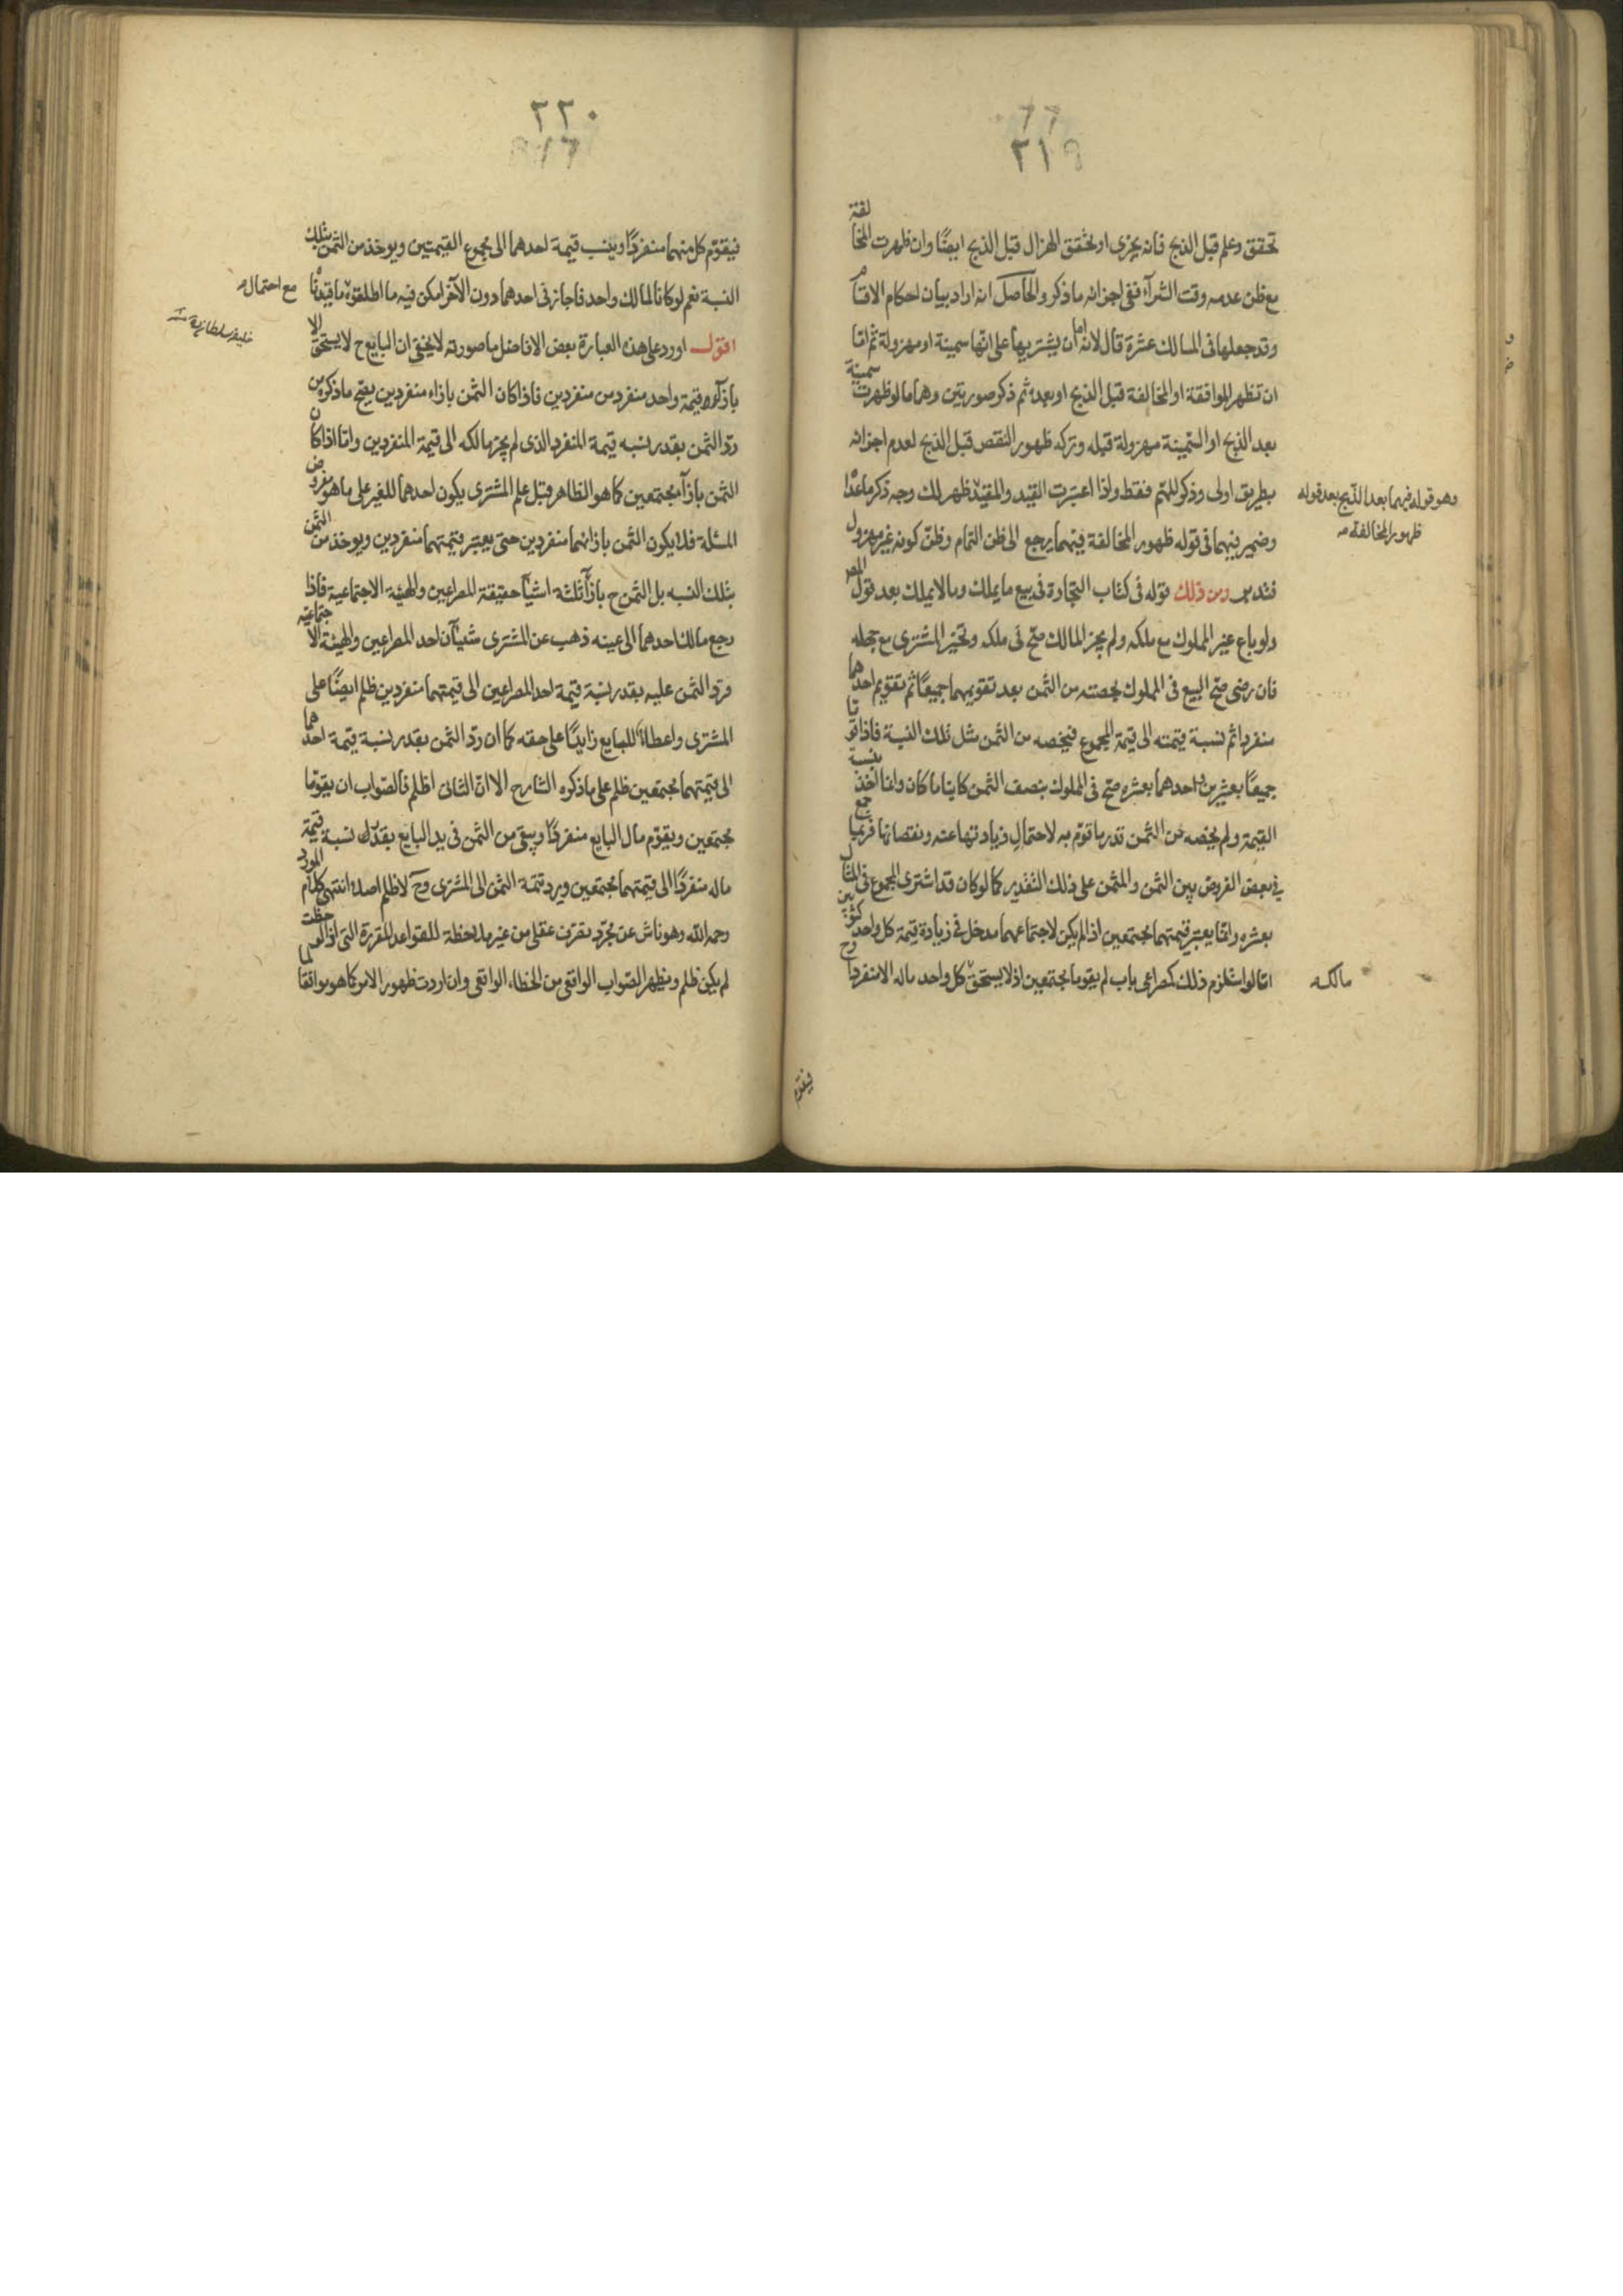 ٢١٩
تحقق وعلم قبل الذبح فانه يجزى او تحقق الهزال قبل الذبح ايضًا وان ظهرت المخالفة
مع ظن عدمه وقت الشرآء ففى اجزائه ما ذكر والحاصل انه اراد بيان احكام الاقسام
وقد جعلها فى المسالك عشرة قال لانه اما ان يشتريها على انها سمينة او مهزولة ثم اما
ان تظهر الموافقة او المخالفة قبل الذبح او بعده ثم ذكر صورتين وهما ما لو ظهرت سمينة
بعد الذبح او السمينة مهزولة قبله وتركه ظهور النقص قبل الذبح لعدم اجزائه
بطريق اولى وذكر للمتم فقط ولذا اعتبرت القيد والمقيد ظهر لك وجه ذكر ما عدا
وهو قوله فيهما بعد الذبح بعد قوله
ظهور المخالفة
وضمير فيهما فى قوله ظهور المخالفة فيهما يرجع الى ظن التمام وظن كونه غير مهزول
فتدبر ومن ذلك قوله فى كتاب التجارة فى بيع ما يملك وما لا يملك بعد قول المص
ولو باع غير المملوك مع ملكه ولم يجز المالك صح فى ملكه وتخير المشترى مع جهله
فان رضى صح البيع فى المملوك بحصته من الثمن بعد تقويمهما جميعًا ثم تقويم احدهما
منفردا ثم نسبة قيمته الى قيمة المجموع فيخصه من الثمن مثل تلك النسبة فاذا قوما
جميعًا بعشرين واحدهما بعشره صح فى المملوك بنصف الثمن كاينا ما كان وانما اخذ بنسبة
القيمة ولم يخصه من الثمن قدر ما قوم به لاحتمال زيادتها عنه ونقصانها فربما جمع
فى بعض الفروض بين الثمن والمثمن على ذلك التقدير كما لو كان قد اشترى المجموع فى المثال
بعشره وانما يعتبر قيمتهما مجتمعين اذا لم يكن لاجتماعهما مدخل فى زيادة قيمة كل واحد كثوبين
اما لو استلزم ذلك كمصراعى باب لم يقوما مجتمعين اذ لا يستحق كل واحد ماله الا منفردا وح
مالكه
فيقوم
٢٢٠
فيقوم كل منهما منفردًا وينسب قيمة احدهما الى مجموع القيمتين ويوخذ من الثمن بتلك
النسبة نعم لو كانا لمالك واحد فاجاز فى احدهما دون الآخر امكن فيه ما اطلقوه ما قيدناه
مع احتمال
اقول اورد على هذه العبارة بعض الافاضل ما صورته لا يخفى ان البايع ح لا يستحق الا
بازآء قيمة واحد منفرد من منفردين فاذا كان الثمن بازاء منفردين يصح ما ذكره من
ردّ الثمن بقدر نسبه قيمة المنفرد الذى لم يجز مالكه الى قيمة المنفردين واما اذا كان
الثمن بازآء مجتمعين كما هو الظاهر قبل علم المشترى بكون احدهما للغير على ما هو مفروض
المسئلة فلا يكون الثمن بازائهما منفردين حتى يعتبر قيمتهما منفردين ويوخذ من الثمن
بتلك النسبه بل الثمن ح بازآء ثلثة اشيآء حقيقة للمصراعين والهيئة الاجتماعية فاذا
رجع مالك احدهما الى عينه ذهب عن المشترى شيئان احد المصراعين والهيئة الاجتماعية
فرد الثمن عليه بقدر نسبة قيمة احد المصراعين الى قيمتهما منفردين ظلم ايضًا على
المشترى واعطاء للبايع زايدًا على حقه كما ان ردّ الثمن بقدر نسبة قيمة احدهما
الى قيمتهما مجتمعين ظلم على ما ذكره الشارح الا ان الثانى اظلم فالصواب ان يقوما
مجتمعين ويقوّم مال البايع منفردًا ويبقى من الثمن فى يد البايع بقدر نسبة قيمة
ماله منفردًا الى قيمتهما مجتمعين ويرد تتمة الثمن الى المشترى وح لا ظلم اصلا انتهى كلام المورد
رحمه الله وهو ناش عن مجرّد تصرّف عقلى من غير ملاحظة للقواعد المقررة التى اذا لوحظت
لم يكن ظلم ويظهر الصواب الواقعى من الخطاء الواقعى وان اردت ظهور الامر كما هو موافقا